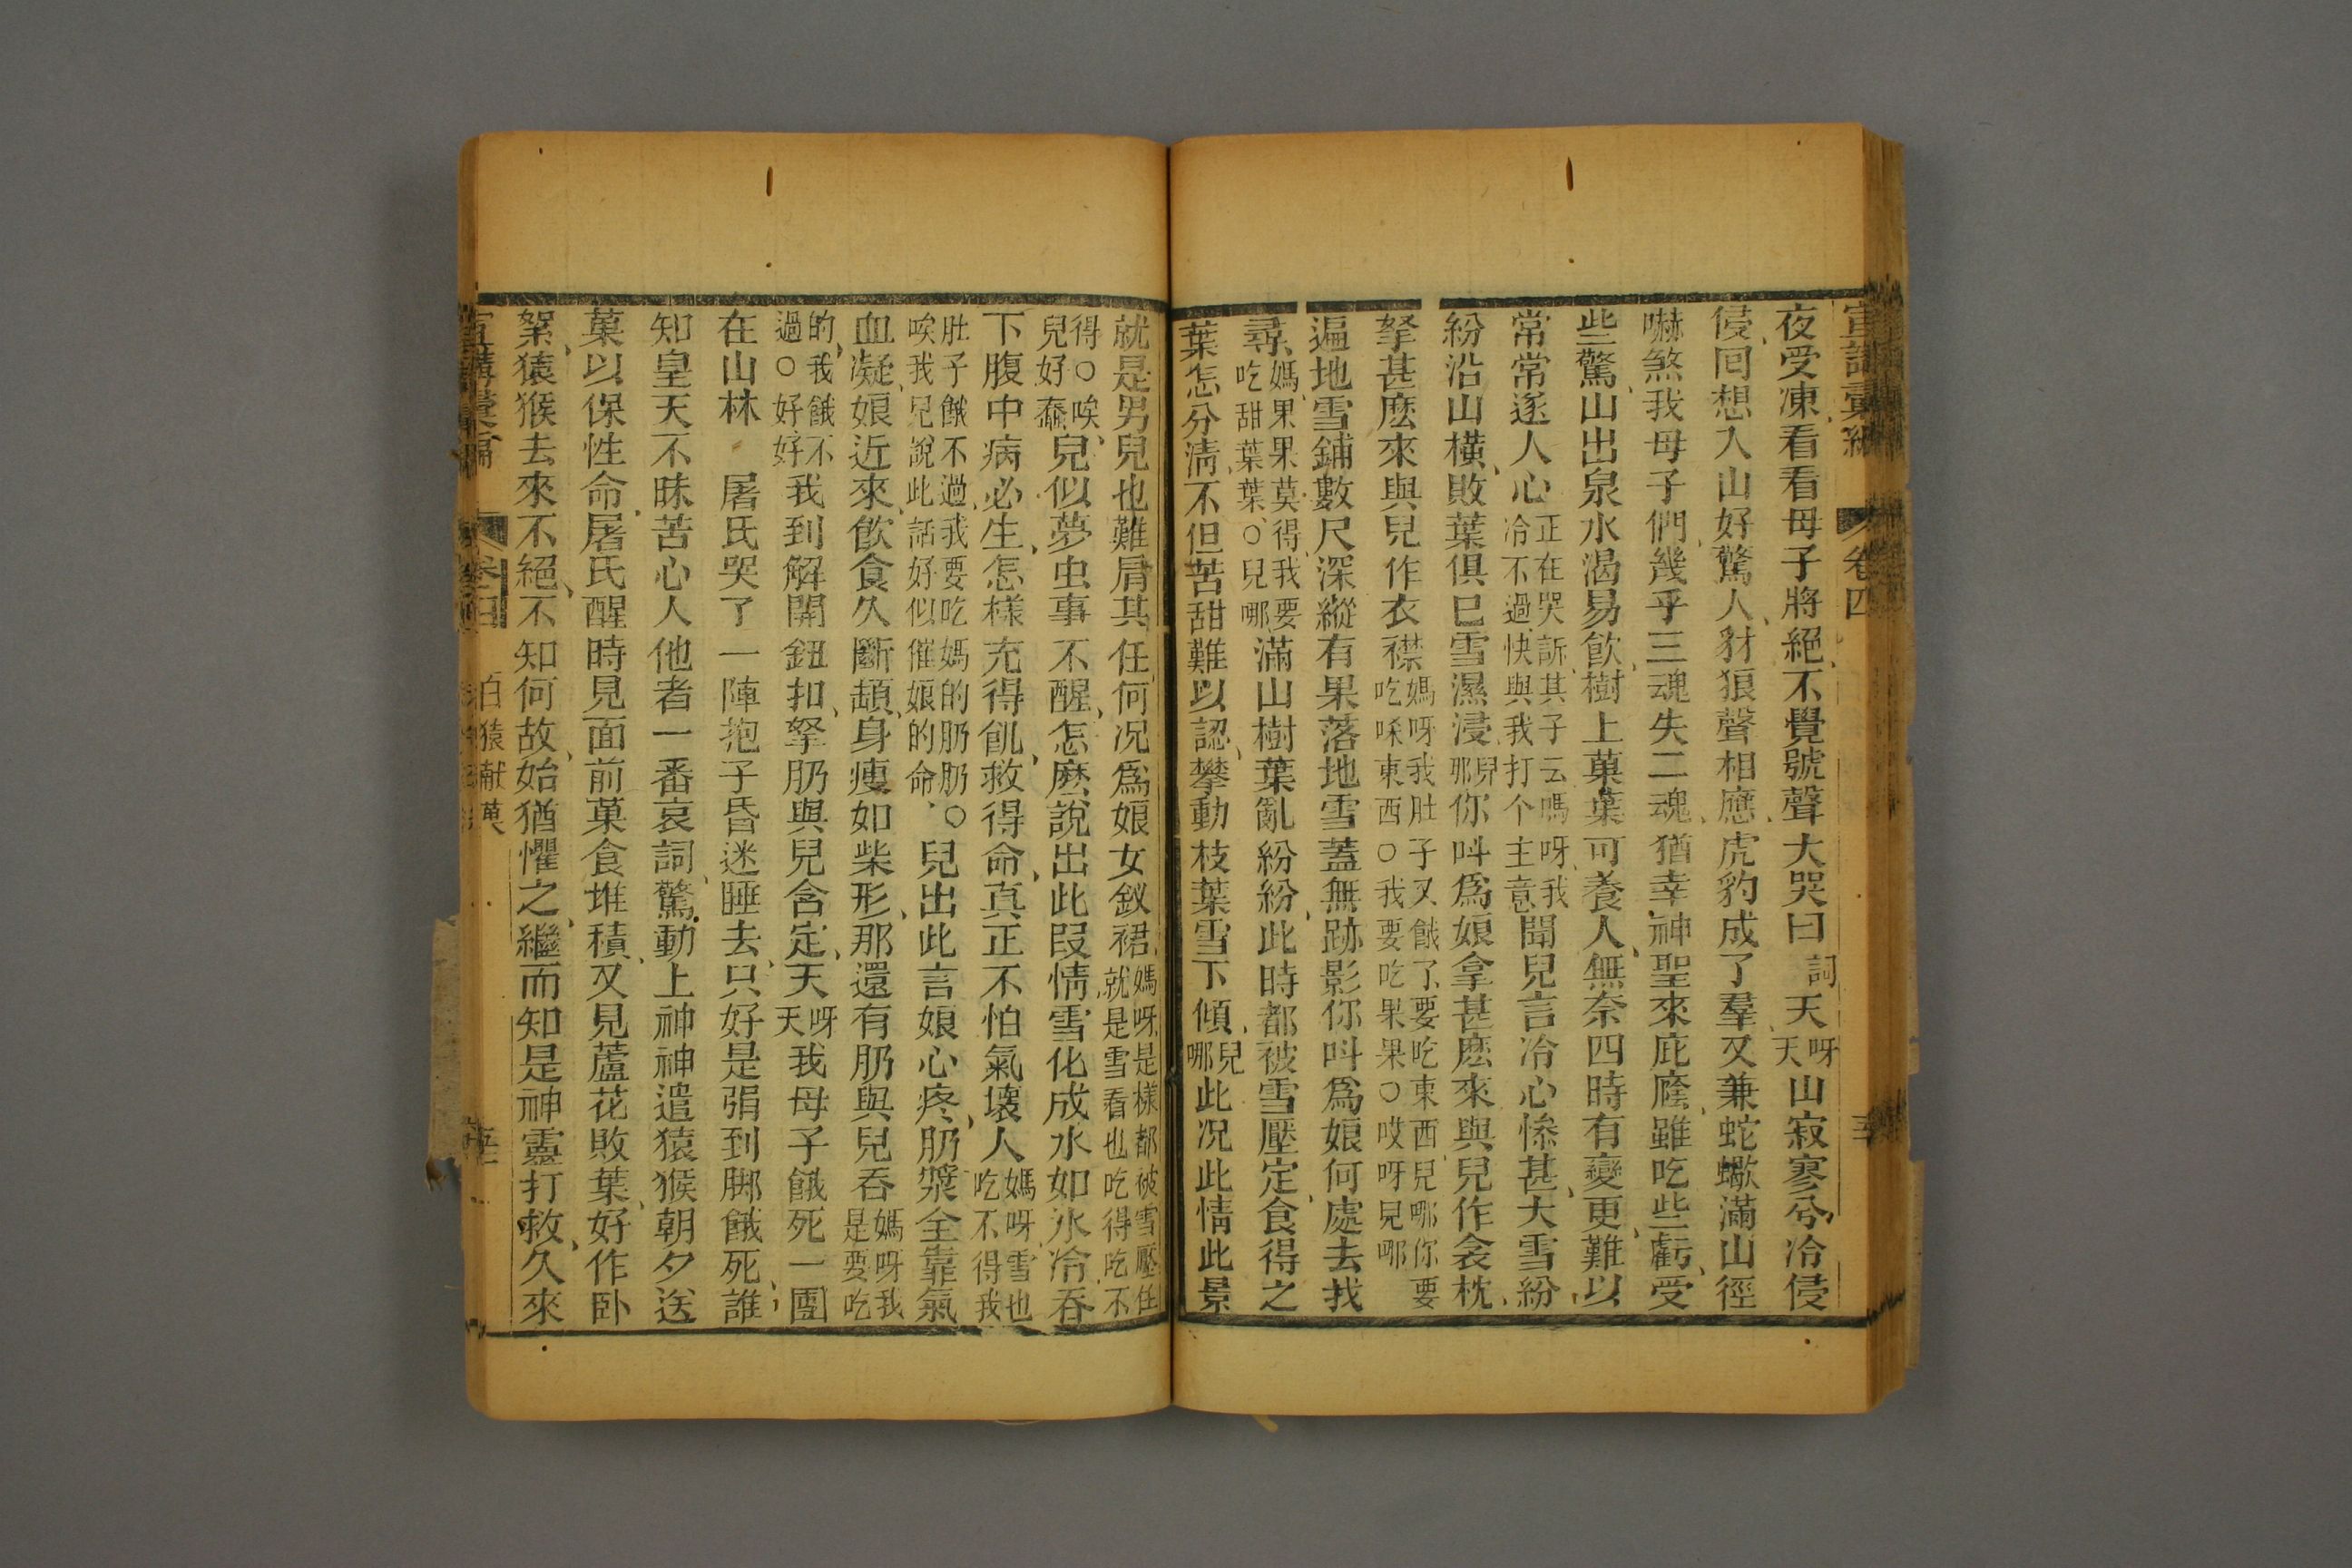 卷四
夜受凍看看母子將絕不覺號聲大哭曰 詞 天呀天山寂寥兮冷侵
侵回想入山好驚人豺狼聲相應虎豹成了羣又兼蛇蠍滿山徑
嚇煞我母子們幾乎三魂失二魂猶幸神聖來庇廕雖吃些虧受
些驚山出泉水渴易飲樹上菓葉可養人無奈四時有變更難以
常常遂人心正在哭訴其子云媽呀我冷不過快與我打个主意聞兒言冷心慘甚大雪紛
紛沿山橫敗葉俱已雪濕浸兒那你叫爲娘拿甚麽來與兒作衾枕
拏甚麽來與兒作衣襟媽呀我肚子又餓了要吃東西兒哪你要吃嗏東西○我要吃果果○哎呀兒哪
遍地雪鋪數尺深縱有果落地雪蓋無跡影你叫爲娘何處去找
尋媽果果莫得我要吃甜葉葉○兒哪滿山樹葉亂紛紛此時都被雪壓定食得之
葉怎分清不但苦甜難以認攀動枝葉雪下傾兒哪此況此情此景
就是男兒也難肩其任何況爲娘女釵裙媽呀是樣都被雪壓住就是雪看也吃得吃不
得○唉兒好蠢兒似夢虫事不醒怎麽說出此段情雪化成水如氷冷吞
下腹中病必生怎樣充得飢救得命真正不怕氣壞人媽呀雪也吃不得我
肚子餓不過我要吃媽的肕肕○唉我兒說此話好似催娘的命兒出此言娘心疼肕漿全靠氣
血凝娘近來飲食久斷頓身瘦如柴形那還有肕與兒吞媽呀我是要吃
的我餓不過○好好我到解開鈕扣拏肕與兒含定天呀天我母子餓死一團
在山林 屠氏哭了一陣抱子昏迷睡去只好是弭到脚餓死誰
知皇天不昧苦心人他者一番哀詞驚動上神神遣猿猴朝夕送
菓以保性命屠氏醒時見面前菓食堆積又見蘆花敗葉好作卧
絮猿猴去來不絕不知何故始猶懼之繼而知是神靈打救久來
宣講彙編 卷四 白猿献菓